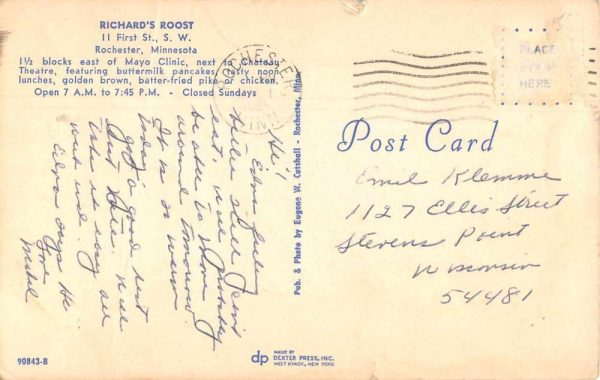 RICHARD'S ROOST
11 First St., S. W.
Rochester, Minnesota
1½ blocks east of Mayo Clinic, next to Chateau
Theatre, featuring buttermilk pancakes, tasty noon
lunches, golden brown, batter-fried pike or chicken.
Open 7 A.M. to 7:45 P.M. - Closed Sundays
Hi!
Edna feeling
better still can't
eat, will probably
be able to some
around tomorrow
It is so warm
today.
got a good rest
last nite. will
well.
Edna says Hi
Love
Mabel
ROCHESTER
MINN
Pub. & Photo by Eugene W. Cutshall - Rochester, Minn.
PLACE
STAMP
HERE
Post Card
Emil Klemme
1127 Ellis Street
Stevens Point
Wisconsin
54481
90843-B
dp
MADE BY
DEXTER PRESS, INC.
WEST NYACK, NEW YORK